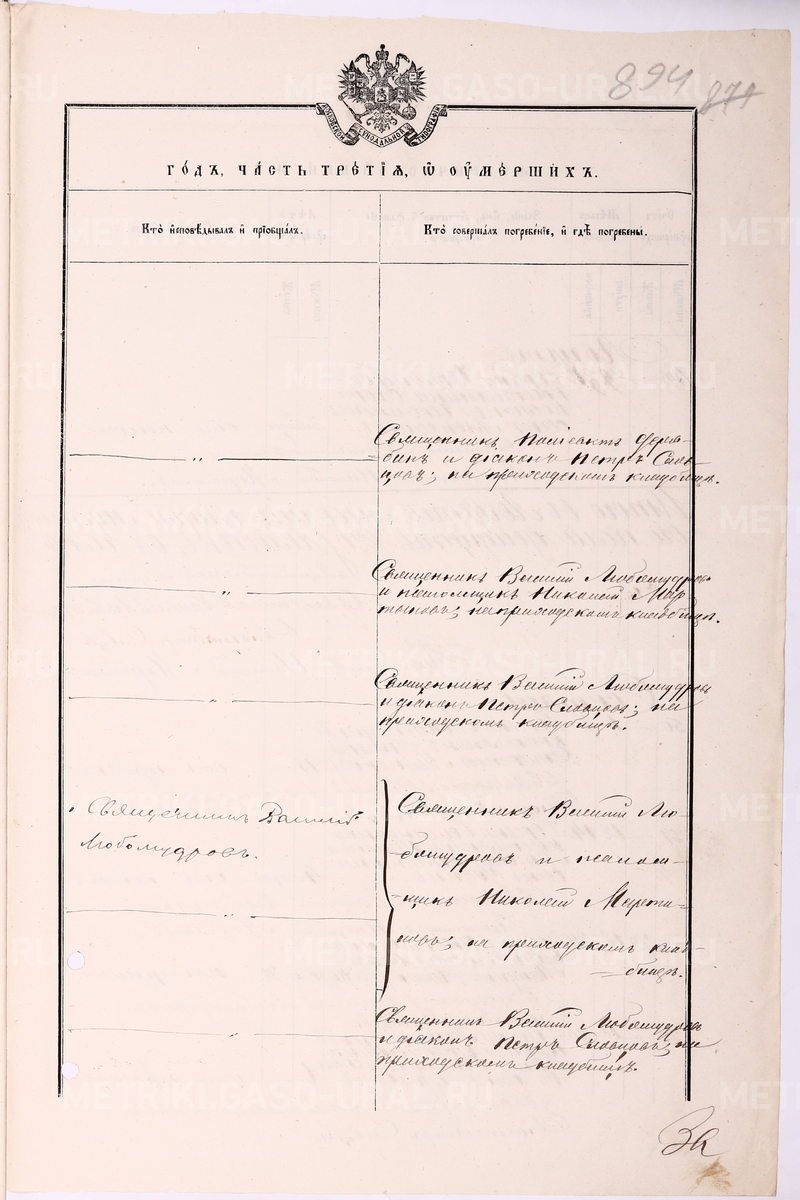 894 871
МОСКОВСКОЙ СУНОДАЛЬНОЙ ТИПОГРАФІИ
ГО́ДЪ, ЧА́СТЬ ТРЕ́ТІѦ, Ѡ̓ ОУ̓МЕ́РШИХЪ.
Кто̀ и҆сповѣ́дывалъ и҆ прїобща́лъ.
Кто̀ соверша́лъ погребе́нїе, и҆ гдѣ̀ погребены̀.
Священникъ Поліевктъ Деря-
бинъ и діаконъ Петръ Слов-
цовъ; на приходскомъ кладбищѣ.
„
Священникъ Василій Любомудровъ
и псаломщикъ Николай Мар-
тыновъ; на приходскомъ кладбищѣ.
„
Священникъ Василій Любомудровъ
и діаконъ Петръ Словцовъ; на
приходскомъ кладбищѣ.
„
Священникъ Василій
Любомудровъ.
„
Священникъ Василій Лю-
бомудровъ и псалом-
щикъ Николай Марты-
новъ; на приходскомъ клад-
бищѣ.
Священникъ Василій Любомудровъ
и діаконъ Петръ Словцовъ; на
приходскомъ кладбищѣ.
„
За
METRIKI.GASO-URAL.RU